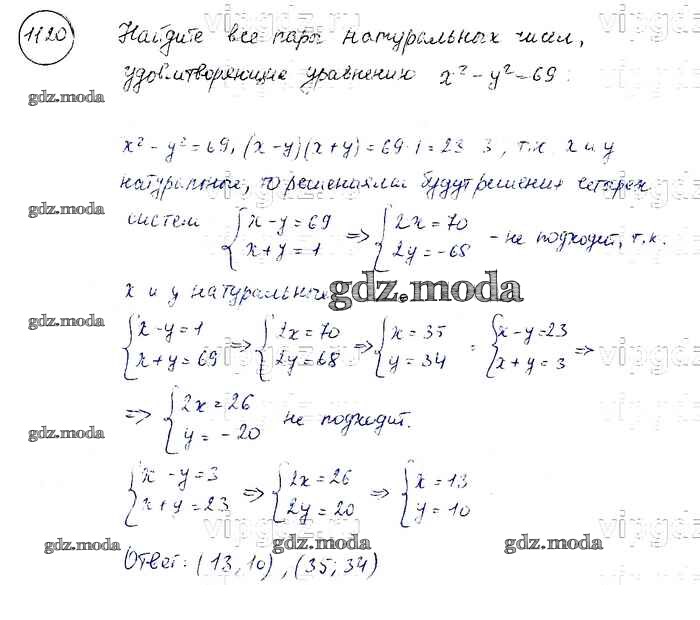 1120 Найдите все пары натуральных чисел,
удовлетворяющие уравнению x² - y² = 69:
gdz.moda
x² - y² = 69, (x - y)(x + y) = 69·1 = 23·3, т.к. x и y
натуральные, то решениями будут решения четырех
gdz.moda
систем { x - y = 69 x + y = 1 => { 2x = 70 2y = -68 - не подходит, т.к.
x и y натуральные
gdz.moda
gdz.moda
{ x - y = 1 x + y = 69 => { 2x = 70 2y = 68 => { x = 35 y = 34 ; { x - y = 23 x + y = 3 =>
=> { 2x = 26 y = -20 не подходит.
gdz.moda
{ x - y = 3 x + y = 23 => { 2x = 26 2y = 20 => { x = 13 y = 10
gdz.moda gdz.moda gdz.moda
Ответ: (13, 10), (35; 34)